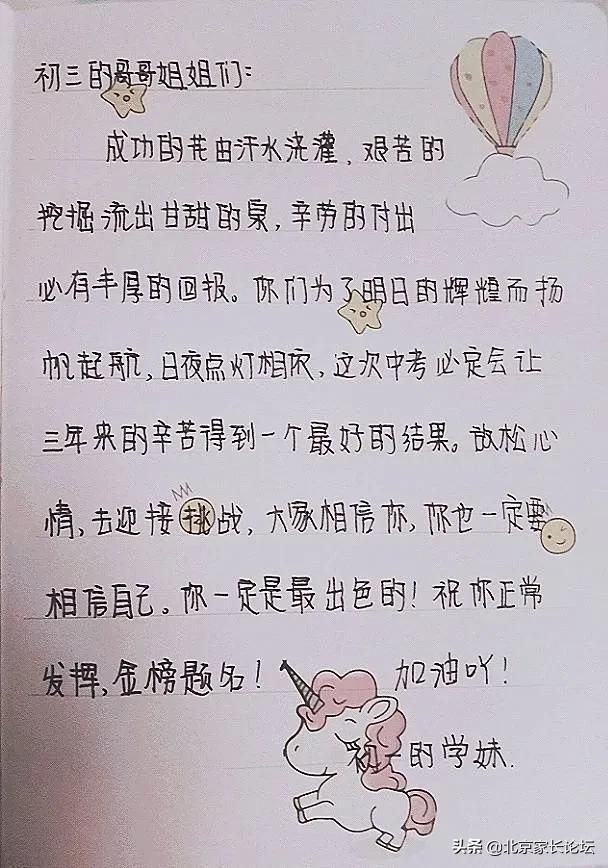 初三的哥哥姐姐们:
成功的花由汗水浇灌、艰苦的
挖掘流出甘甜的泉,辛劳的付出
必有丰厚的回报。你们为了明日的辉煌而扬
帆起航,日夜点灯相依,这次中考必定会让
三年来的辛苦得到一个最好的结果。放松心
情,去迎接挑战,大家相信你,你也一定要
相信自己。你一定是最出色的!祝你正常
发挥,金榜题名!
加油吖!
初一的学妹.
头条@北京家长论坛